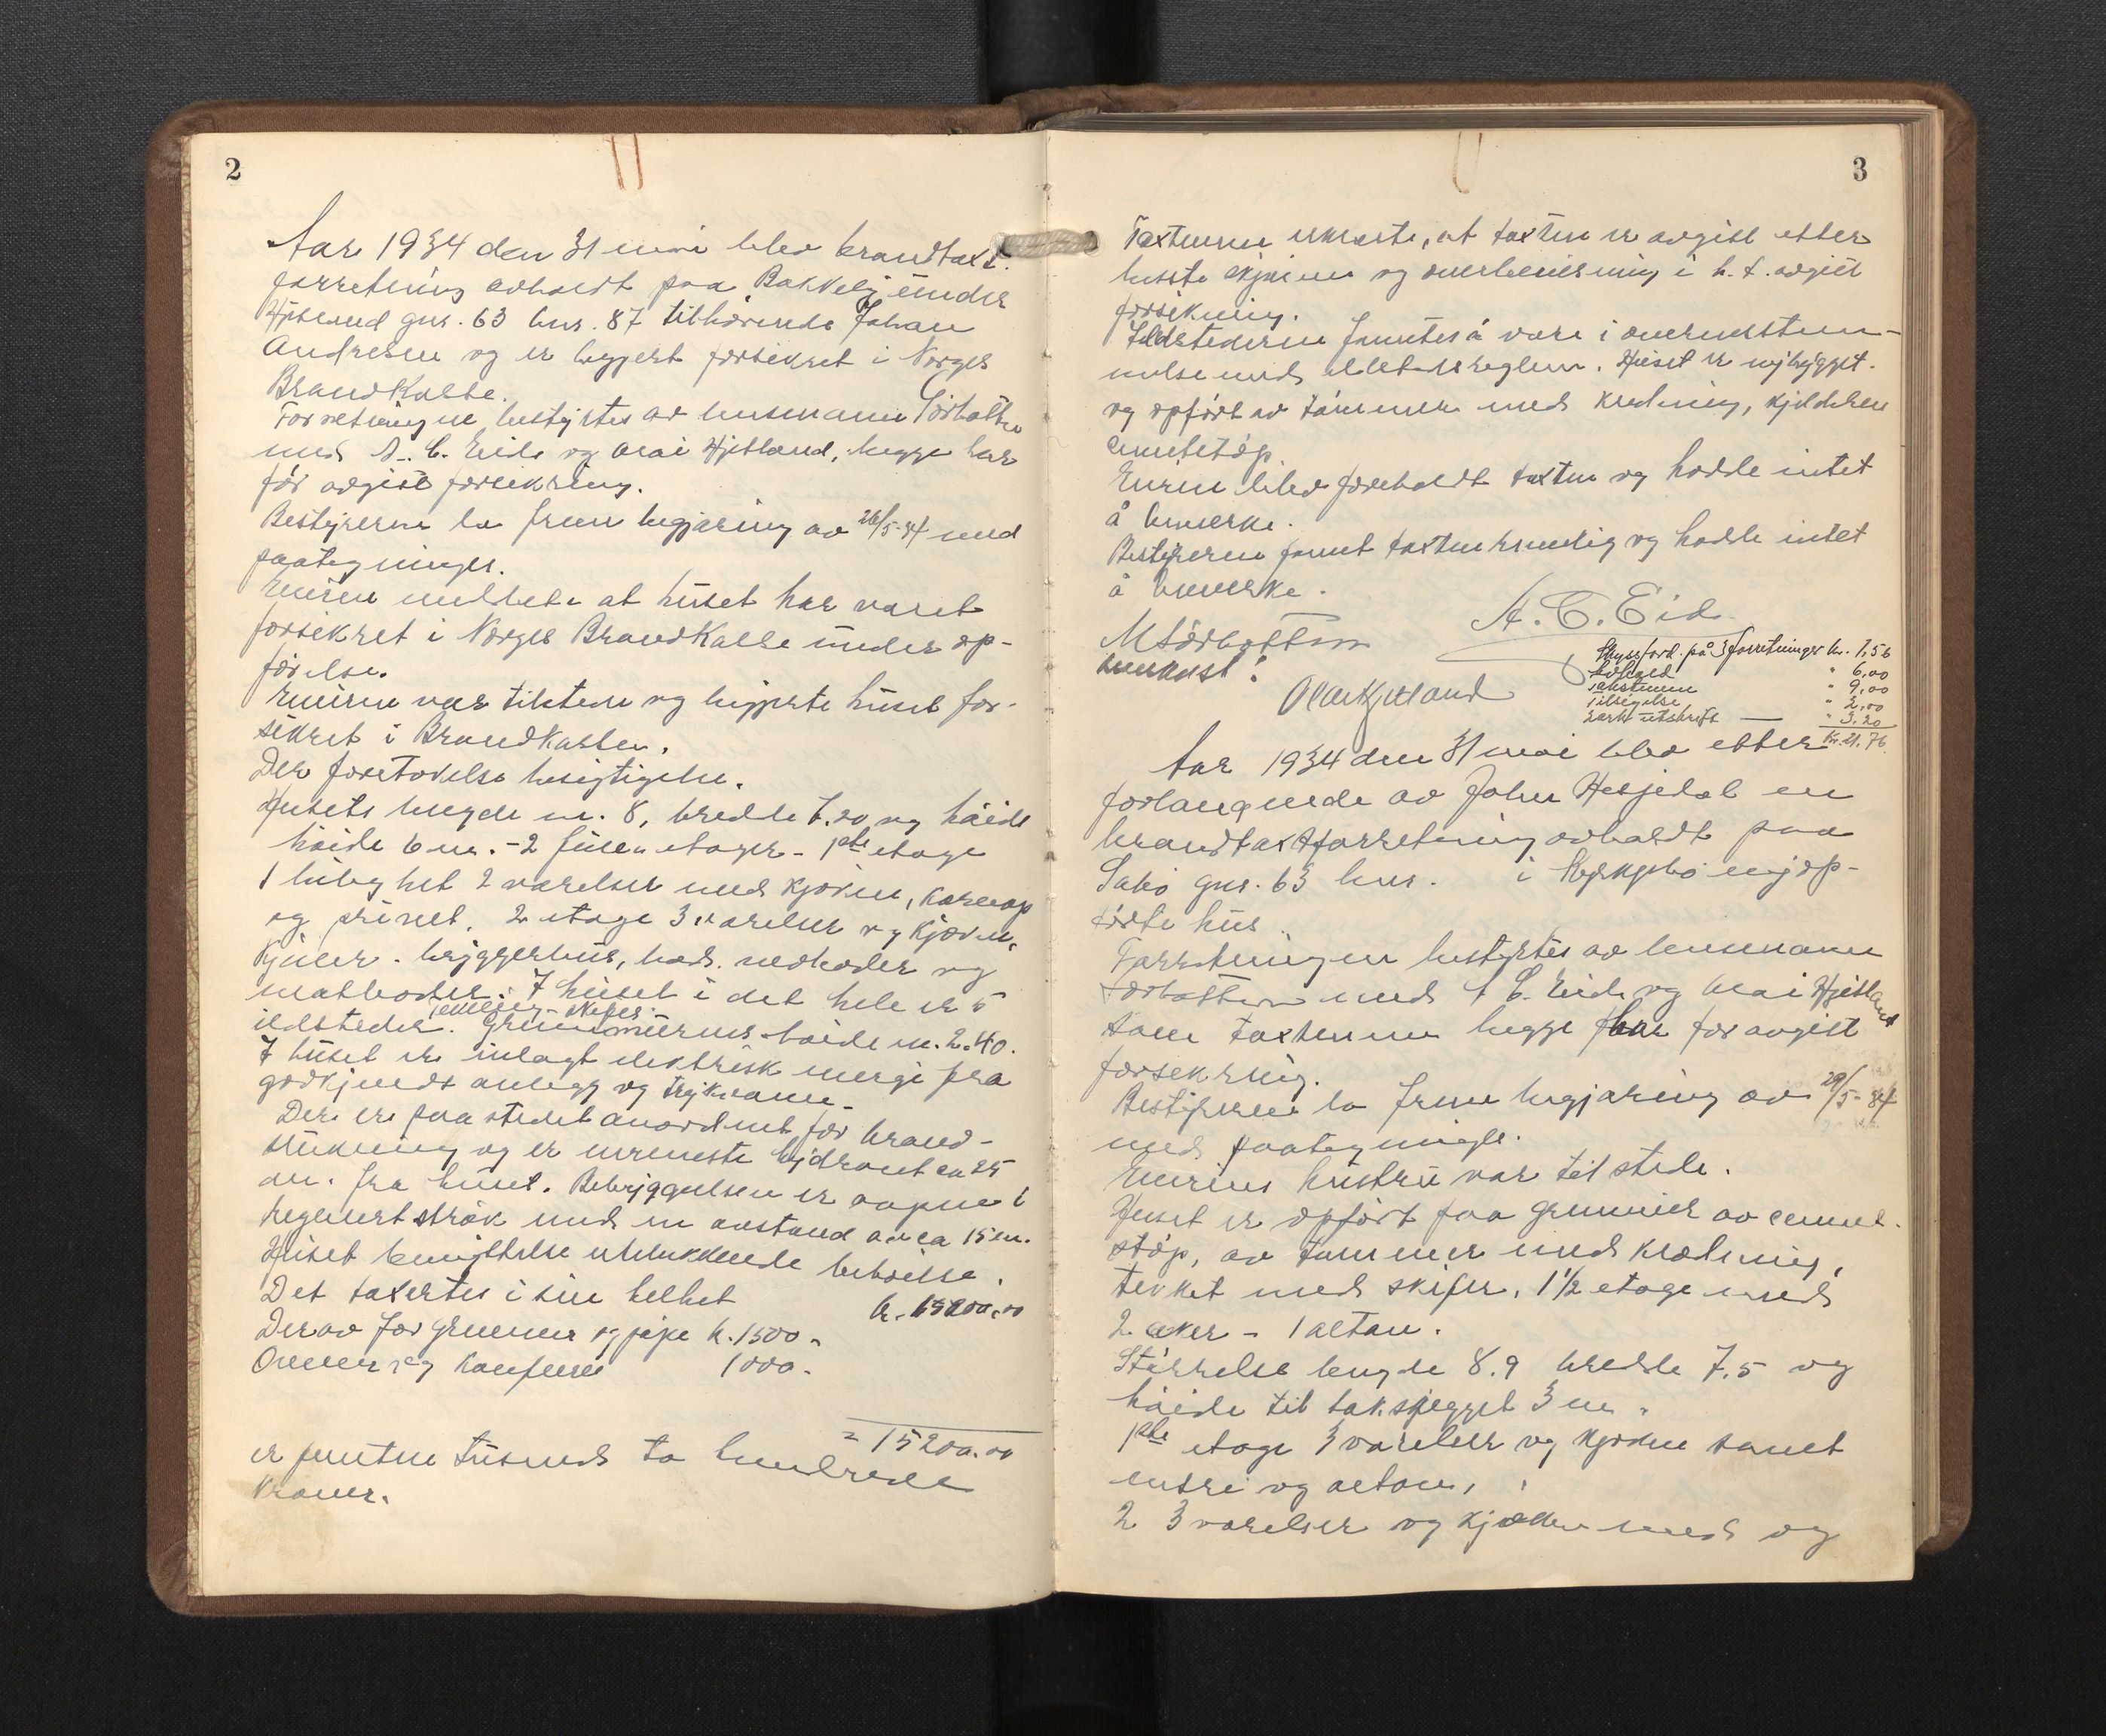 2
Aar 1934 den 31 mai blev brandtaxt.
forretning avholdt paa Bakkely under
Hjetland gnr. 63 bnr. 87 tilhørende Johan
Andresen og er begjert forsikret i Norges
BrandKasse.
Forretningen bestyrtes av lensmann Sörbotten
med A. C. Eide og Olai Hjetland, begge har
før avgitt forsikring.
Bestyreren la frem begjæring av 26/5-34 med
paategninger.
Eieren meldte at huset har været
forsikret i Norges BrandKasse under op-
førelse.
Eieren var tilstede og begjærte huset for-
sikret i BrandKassen.
Der foretokes besigtigelse.
Husets lengde m. 8, bredde 7.20 og høide
høide 6 m. - 2 fulle etager - 1ste etage
1 leilighet 2 værelser med kjøken,
og privet. 2 etage 3 værelser og kjøken,
Kjeller - bryggerhus, bad. vedboder og
matboder. I huset i det hele er 5
ildsteder. Grunmurens høide m. 2.40.
I huset er inlagt elektrisk energi fra
godkjendt anlegg og trykvann.
Der er paa stedet anordnet for brand-
slukning og er nermeste hydrant ca 25
m. fra huset. Bebyggelsen er aapne i
regulert strøk med en avstand av ca 15 m.
Huset benyttelse utelukkende beboelse.
Det taxertes i sin helhet kr. 15200.00
Derav for grunmur og pipe k. 1500.-
Ovener og Komfurer 1000.-
= 15200.00
er femten tusend to hundrede
Kroner.
3
Taxtmennene erklærte, at taxten er avgitt efter
beste skjønn og overbevisning i h. t. avgitt
forsikring.
Ildstederne fanntes å være i overenstem-
melse med reglene. Huset er nybygget.
og opført av tömmer med kledning, kjelderen
cementstøp.
Eieren blev foreholdt taxten og hadde intet
å bemerke.
Bestyreren fannt taxten rimelig og hadde intet
å bemerke.
A. C. Eide
M Sörbotten
lensmann
Olai Hjetland
Skyssgod. på 3 forretninger kr. 1,56
" 6,00
Takstmenn " 9,00
Tilsigelse " 2,00
utskrift — " 3.20
Kr. 21.76
Aar 1934 den 31 mai blev efter
forlangende av John Hesjedal en
brandtaxtforretning avholdt paa
Sabø gnr. 63 bnr. i nyop-
førte hus.
Forretningen bestyrtes av lensmann
Sørbotten med A C. Eide og Olai Hjetland
som taxtmenn begge har før avgitt
forsikring.
Bestyreren la frem begjæring av 29/5-34
med paategninger.
Eierens hustru var tilstede.
Huset er opført paa grunmur av cement-
støp, av tømmer med kledning,
tekket med skifer, 1 1/2 etage med
2 arker - 1 altan.
Størrelse lengde 8.9 bredde 7.5 og
høide til takskjegget 3 m.
1ste etage 3 værelser og kjøken samt
entre og altan,
2 3 værelser og kjøken med og